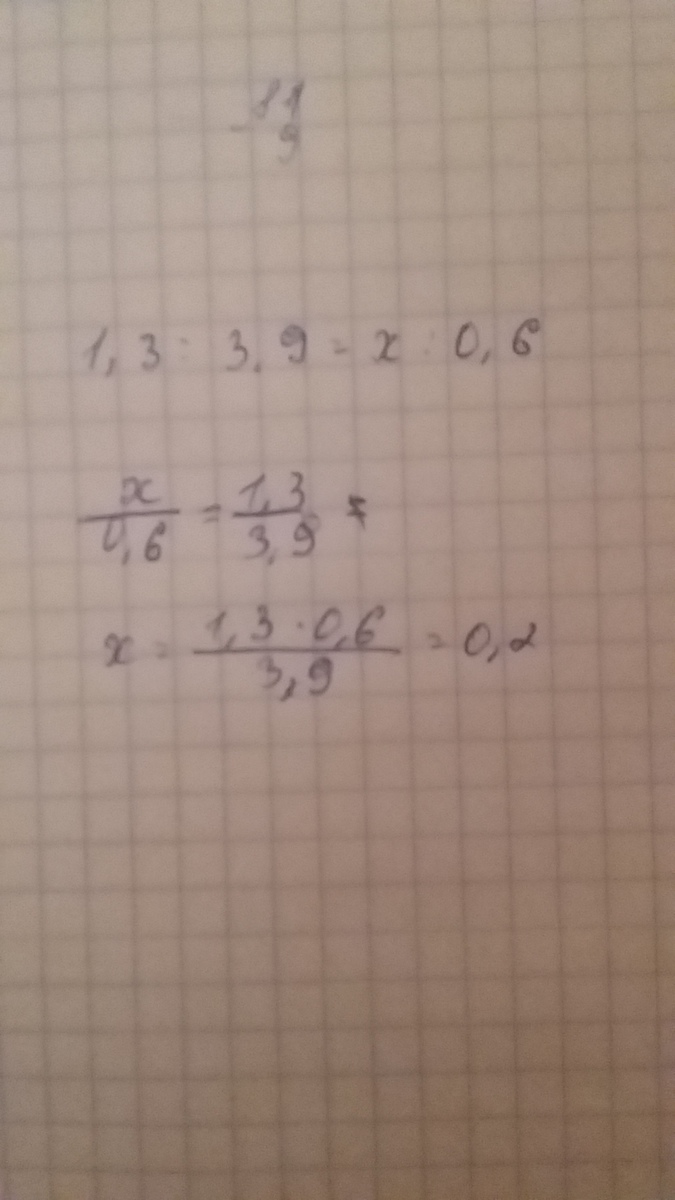 - 11
9
1,3 : 3,9 = x : 0,6
x/0,6 = 1,3/3,9
x = 1,3 · 0,6/3,9 = 0,2